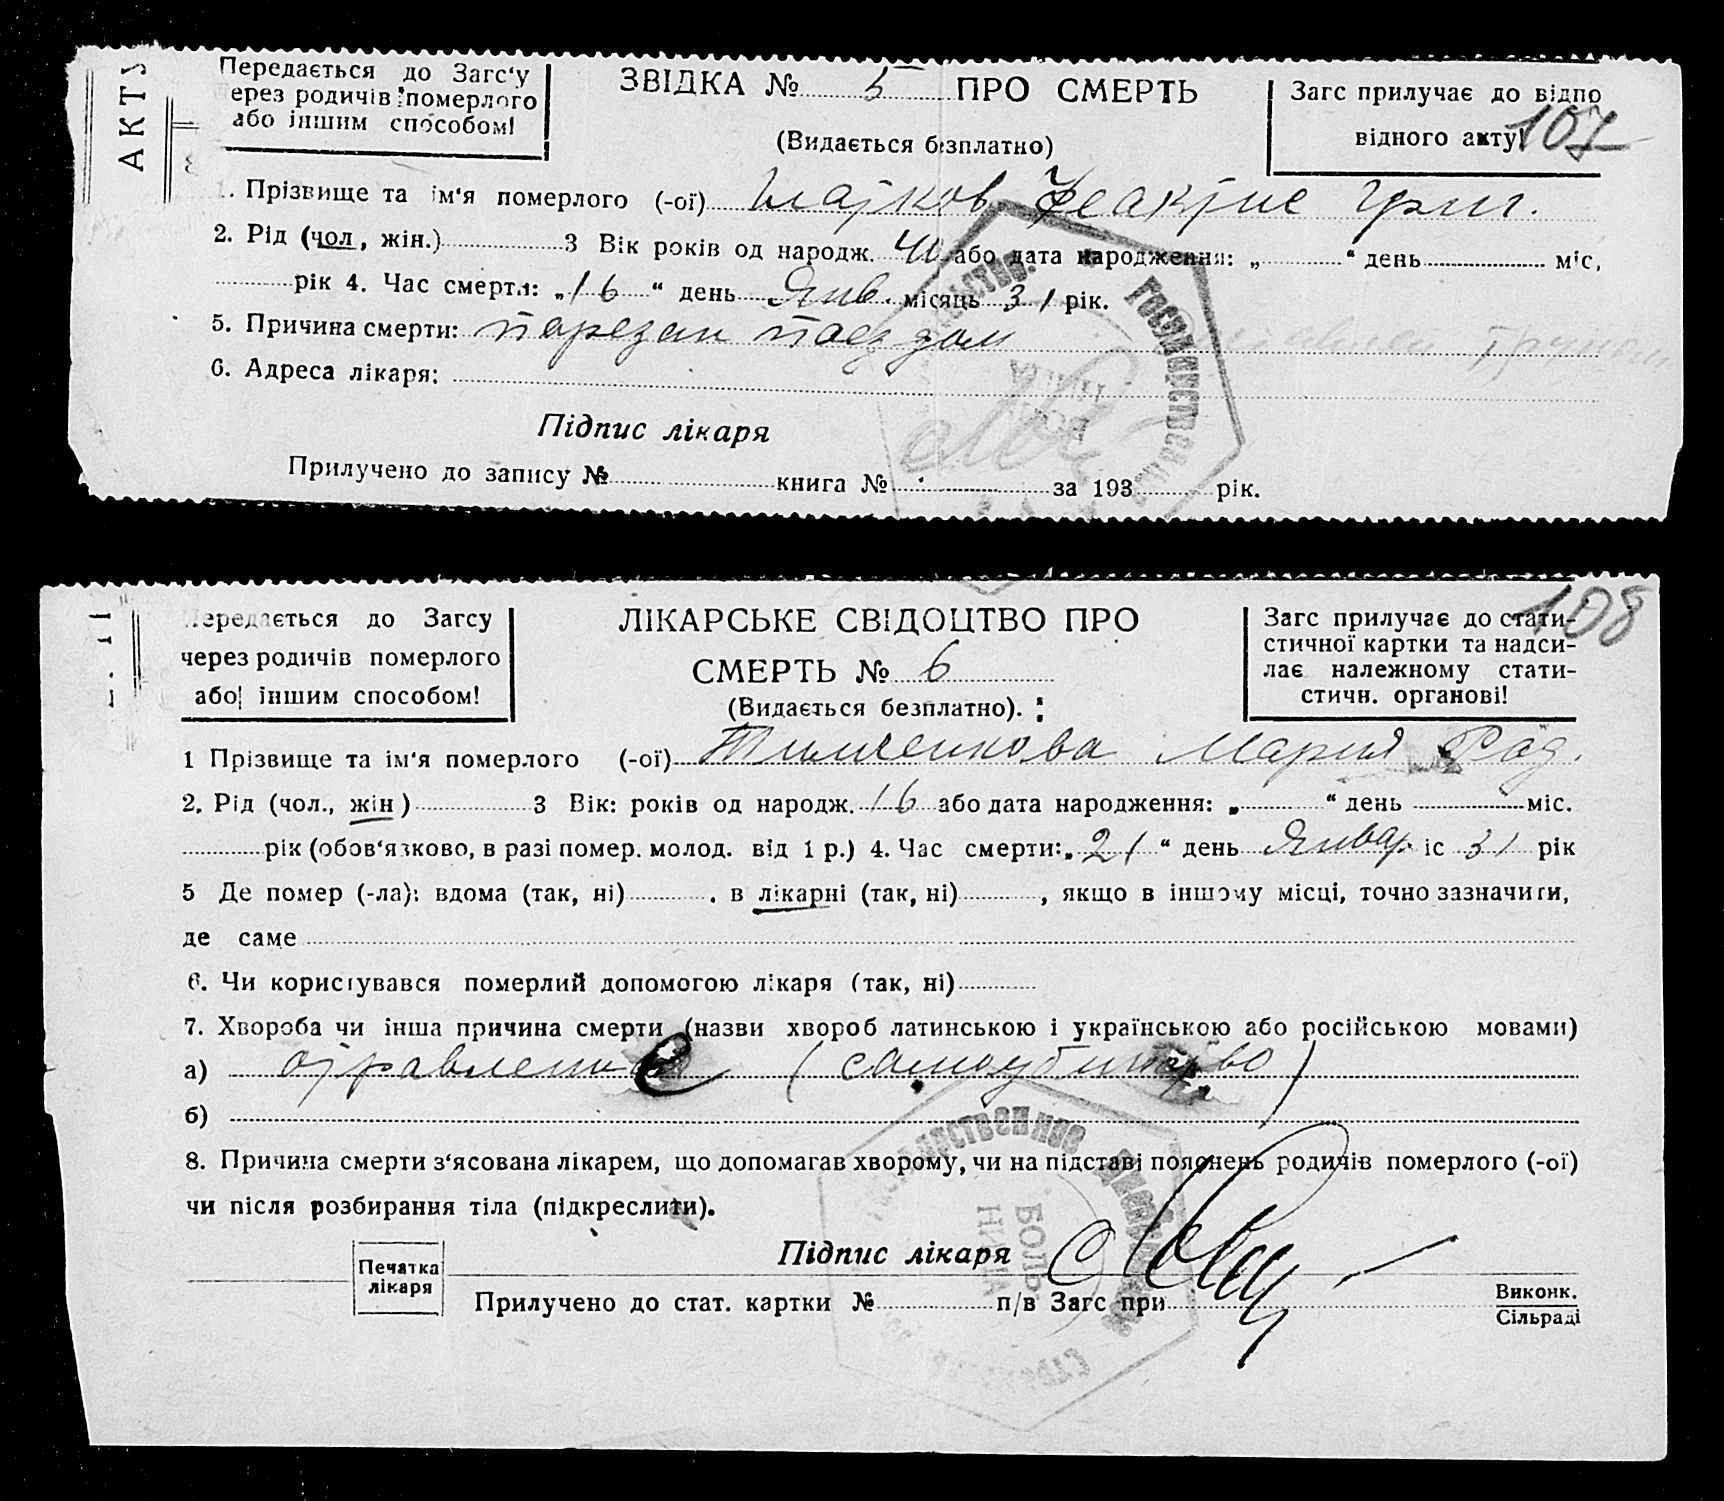 АКТУ
Передається до Загс‘у
ерез родичів померлого
або іншим способом!
ЗВІДКА № 5 ПРО СМЕРТЬ
(Видається безплатно)
Загс прилучає до відпо
відного акту!
107
1. Прізвище та ім‘я померлого (-ої) Григ.
2. Рід (чол, жін.) 3 Вік років од народж. 40 або дата народження: „ “ день міс,
рік 4. Час смерти: „16“ день Янв. місяць 31 рік.
5. Причина смерти: порезан поездом
6. Адреса лікаря:
Підпис лікаря
Прилучено до запису № книга № за 193 рік.
108
Передається до Загсу
через родичів померлого
або іншим способом!
ЛІКАРСЬКЕ СВІДОЦТВО ПРО
СМЕРТЬ № 6
(Видається безплатно).
Загс прилучає до стати-
стичної картки та надси-
лає належному стати-
стичн. органові!
1 Прізвище та ім‘я померлого (-ої) Тимченкова Мария Рад.
2. Рід (чол., жін) 3 Вік: років од народж. 16 або дата народження: „ “ день міс.
рік (обов‘язково, в разі помер. молод. від 1 р.) 4. Час смерти: „21“ день Январ. іс 31 рік
5 Де помер (-ла): вдома (так, ні) . в лікарні (так, ні) , якщо в іншому місці, точно зазначити,
де саме
6. Чи користувався померлий допомогою лікаря (так, ні)
7. Хвороба чи інша причина смерти (назви хвороб латинською і українською або російською мовами)
а) отравление (самоубийство)
б)
8. Причина смерти з‘ясована лікарем, що допомагав хворому, чи на підставі пояснень родичів померлого (-ої)
чи після розбирання тіла (підкреслити).
БОЛЬ
НИЦА
Підпис лікаря
Печатка
лікаря
Прилучено до стат. картки № п/в Загс при
Виконк.
Сільраді